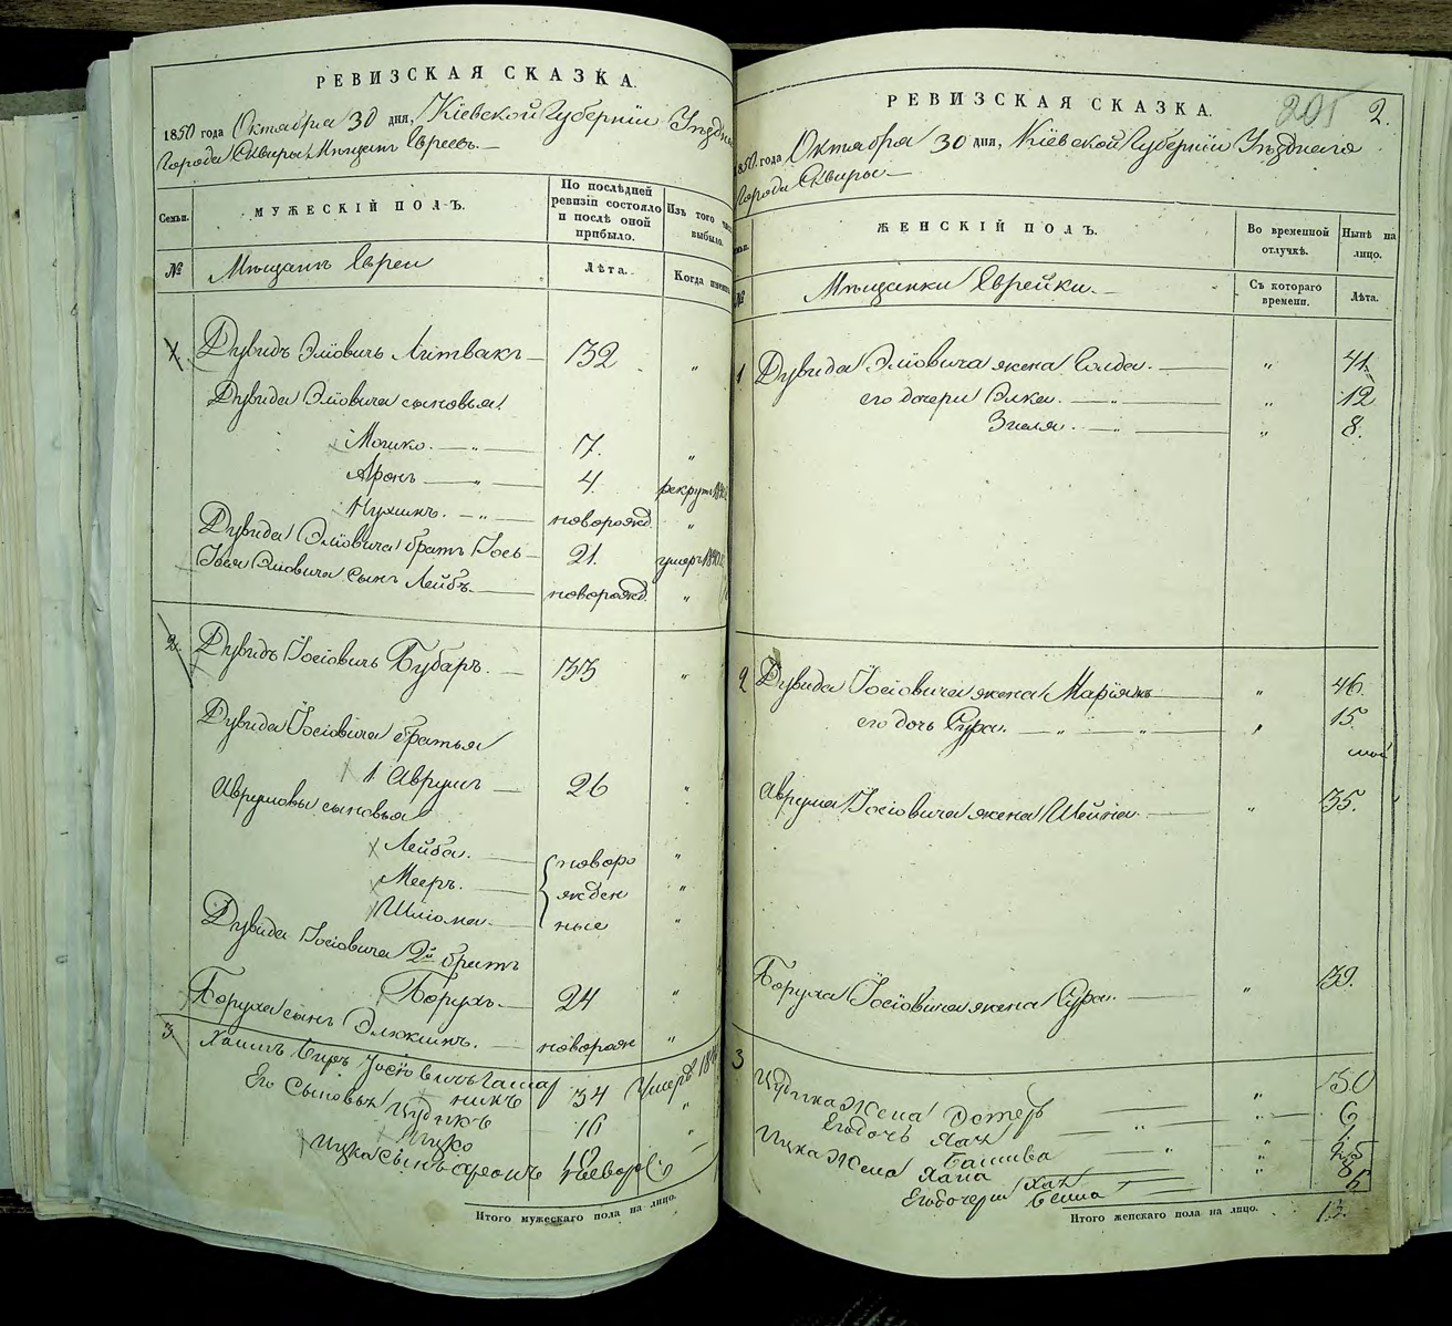 РЕВИЗСКАЯ СКАЗКА.
1850 года Октября 30 дня, Кіевской Губерніи Уѣзднаго
Города Сквиры Мѣщанъ Евреевъ.
Семьи.
МУЖЕСКІЙ ПОЛЪ.
По послѣдней ревизіи состояло и послѣ оной прибыло.
Изъ того числа выбыло.
№
Мѣщане Евреи
Лѣта.
Когда именно
1. Дувидъ Эліовичъ Литвакъ 32 "
Дувида Эліовича сыновья:
Мошко. " 17. "
Аронъ " 4. рекрутъ
Нухимъ. " новорожд. "
Дувида Эліовича братъ Іось 21. умеръ
Іося Эліовича сынъ Лейбъ. новорожд. "
2. Дувидъ Іосіовичъ Бубаръ. 33 "
Дувида Іосіовича братья
1. Аврумъ 26 "
Аврумовы сыновья
Лейба. новоро "
Мееръ. жден "
Шліома. ные "
Дувида Іосіовича 2й братъ
Борухъ. 24 "
Боруха сынъ Элюкимъ. новорож "
3. Хаимъ Беръ Іосіовичъ
никъ 34 Умеръ
Его Сыновья 16 "
Ицко "
Ицка Сынъ Аронъ
Итого мужескаго пола на лицо.
РЕВИЗСКАЯ СКАЗКА.
205 2.
1850 года Октября 30 дня, Кіевской Губерніи Уѣзднаго
Города Сквиры
ЖЕНСКІЙ ПОЛЪ.
Во временной отлучкѣ.
Нынѣ на лицо.
№
Мѣщанки Еврейки.
Съ котораго времени.
Лѣта.
1 Дувида Эліовича жена Голда. " 41.
его дочери Эика. " " 12
Зисля. " " 8.
2 Дувида Іосіовича жена Маріямъ " 46.
его дочь Сура. " " " 15.
Аврума Іосіовича жена Шейна. " 35.
Боруха Іосіовича жена Сура. " 32.
3 Жена " 30
Его дочь Хая " " 6
Башива " "
Ицка Жена Хана "
Его дочери Хая
Бейла
Итого женскаго пола на лицо. 13.